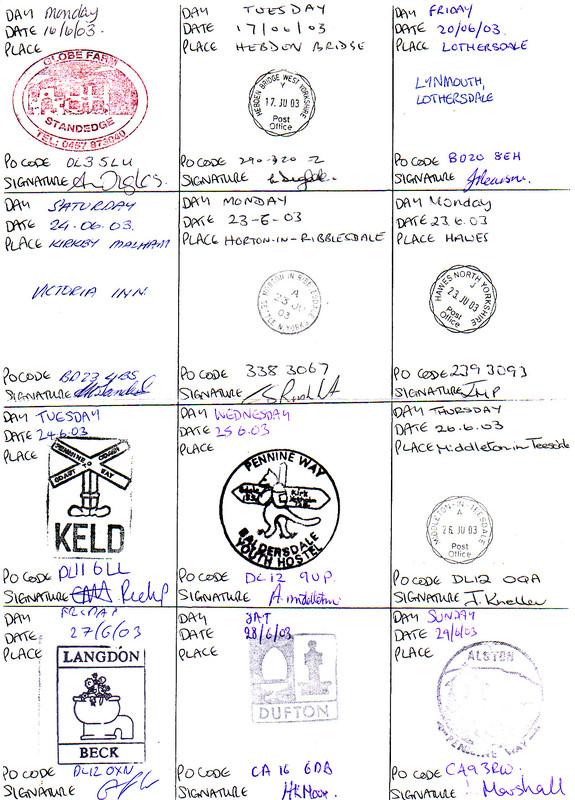 DAY Monday
DATE 16/6/03.
PLACE
GLOBE FARM
STANDEDGE
TEL: 0457 873040
PO CODE OL3 5LU
SIGNATURE
DAY TUESDAY
DATE 17/06/03
PLACE HEBDEN BRIDGE
HEBDEN BRIDGE WEST YORKSHIRE
Y
17 JU 03
Post
Office
PO CODE 290-320 2
SIGNATURE
DAY FRIDAY
DATE 20/06/03.
PLACE LOTHERSDALE
LYNMOUTH,
LOTHERSDALE
PO CODE BD20 8EH
SIGNATURE
DAY SATURDAY
DATE 24.06.03.
PLACE KIRKBY MALHAM
VICTORIA INN.
PO CODE BD23 4BS
SIGNATURE
DAY MONDAY
DATE 23-6-03
PLACE HORTON-IN-RIBBLESDALE
A
23 JU
03
PO CODE 338 3067
SIGNATURE
DAY Monday
DATE 23.6.03
PLACE HAWES
HAWES NORTH YORKSHIRE
23 JU 03
Post
Office
PO CODE 239 3093
SIGNATURE
DAY TUESDAY
DATE 24.6.03
PLACE
PENNINE WAY
COAST TO COAST
KELD
PO CODE DL11 6LL
SIGNATURE
DAY WEDNESDAY
DATE 25.6.03
PLACE
PENNINE WAY
BALDERSDALE
YOUTH HOSTEL
PO CODE DL12 9UP
SIGNATURE A. middleton
DAY THURSDAY
DATE 26.6.03
PLACE Middleton in Teesdale
MIDDLETON-IN-TEESDALE
A
26 JU 03
Post
Office
PO CODE DL12 0QA
SIGNATURE
DAY FRIDAY
DATE 27/6/03
PLACE
LANGDON
BECK
PO CODE DL12 0XN
SIGNATURE
DAY SAT
DATE 28/6/03
PLACE
DUFTON
PO CODE CA16 6DB
SIGNATURE
DAY SUNDAY
DATE 29/6/03
PLACE
ALSTON
PENNINE WAY
PO CODE CA9 3RW
SIGNATURE Marshall